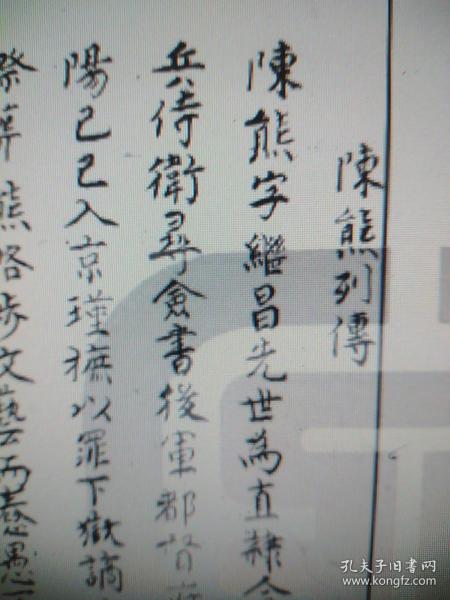 陳熊列傳
陳熊字繼昌先世為直隸合
兵侍衛尋僉書後軍都督府
陽己巳入京瑾撫以罪下獄謫
祭葬熊咯涉文藝而
孔夫子旧书网
www.kongfz.com